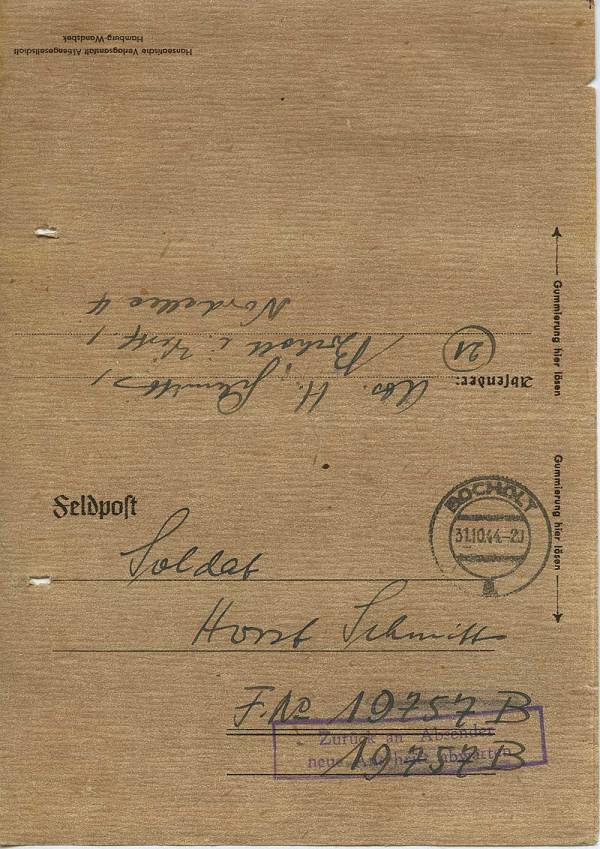 Hanseatische Verlagsanstalt Aktiengesellschaft
Hamburg-Wandsbek
Gummierung hier lösen
Absender: Abs. H. Schmitt,
(21) Bocholt i. Westf.
Nordallee 4
Gummierung hier lösen
Feldpost
BOCHOLT
31.10.44.-20
a
Soldat
Horst Schmitt
F. No 19757 B
Zurück an Absender
neue Anschrift abwarten
19757 B